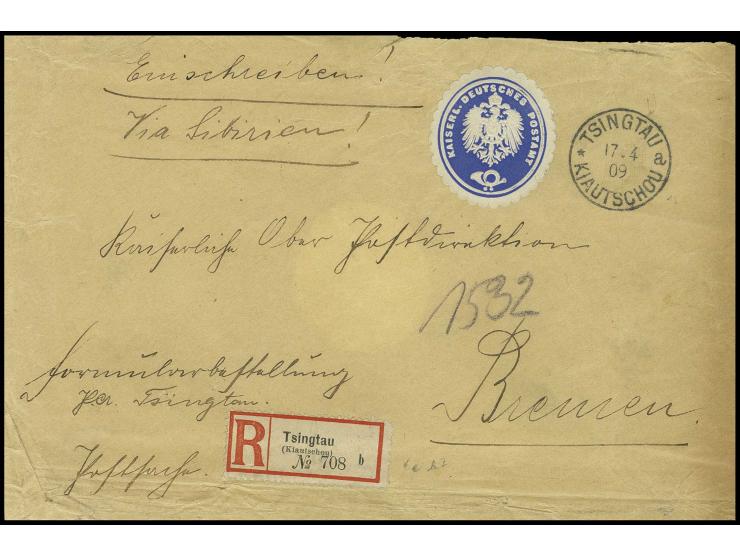 Einschreiben!
Via Sibirien!
KAISERL. DEUTSCHES POSTAMT
* TSINGTAU a
17.4
09
KIAUTSCHOU
Kaiserliche Ober Postdirektion
1532
Bremen.
Formularbestellung
P.A. Tsingtau.
Postsache.
R
Tsingtau
(Kiautschou)
№ 708 b